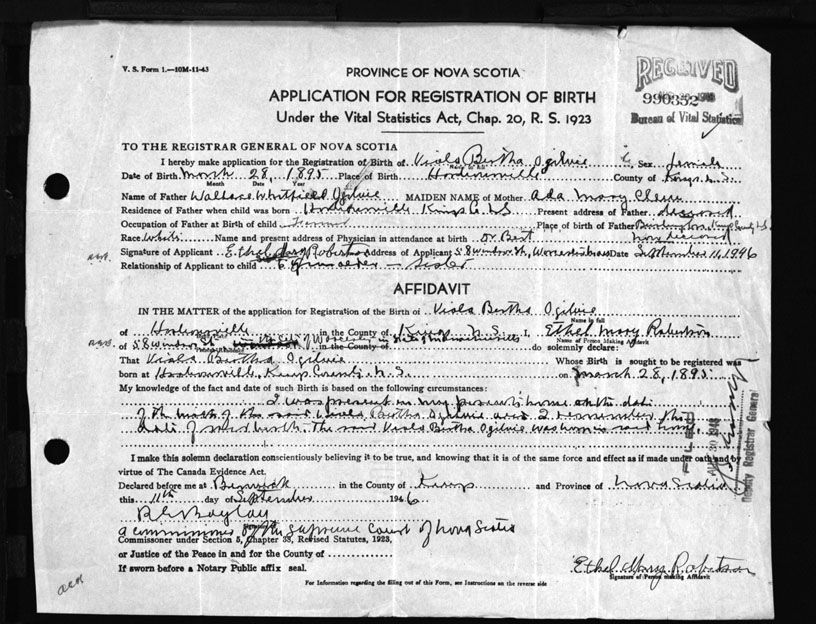 V. S. Form 1.—10M-11-43
PROVINCE OF NOVA SCOTIA
RECEIVED
990352
Bureau of Vital Statistics
APPLICATION FOR REGISTRATION OF BIRTH
Under the Vital Statistics Act, Chap. 20, R. S. 1923
TO THE REGISTRAR GENERAL OF NOVA SCOTIA
I hereby make application for the Registration of Birth of Viola Bertha Ogilvie Sex female
Name in full
Date of Birth March 28, 1895 Place of Birth County of Kings N.S.
Month Date Year
Name of Father Wallace Whitfield Ogilvie MAIDEN NAME of Mother Ada Mary
Residence of Father when child was born Kings Co. N.S. Present address of Father deceased
Occupation of Father at Birth of child Place of birth of Father
Race White Name and present address of Physician in attendance at birth Dr
Signature of Applicant Ethel Mary Robertson Address of Applicant 58 Windsor St, Worcester Mass Date September 11, 1946
Relationship of Applicant to child Sister
AFFIDAVIT
IN THE MATTER of the application for Registration of the Birth of Viola Bertha Ogilvie
Name in full
of in the County of Kings N.S. I, Ethel Mary Robertson
Name of Person Making Affidavit
of 58 Windsor St of Worcester in State of Massachusetts in the County of do solemnly declare:
That Viola Bertha Ogilvie Whose Birth is sought to be registered was
born at Kings County N.S. on March 28, 1895
My knowledge of the fact and date of such Birth is based on the following circumstances:
I was present in my parents home at the date
of the birth of the said Viola Bertha Ogilvie and I remember the
date of said birth. The said Viola Bertha Ogilvie was born in said home.
I make this solemn declaration conscientiously believing it to be true, and knowing that it is of the same force and effect as if made under oath and by
virtue of The Canada Evidence Act.
Declared before me at Berwick in the County of Kings and Province of Nova Scotia
this 11th day of September 1946
a commissioner of the Supreme Court of Nova Scotia
Commissioner under Section 5, Chapter 38, Revised Statutes, 1923,
or Justice of the Peace in and for the County of
If sworn before a Notary Public affix seal.
Ethel Mary Robertson
Signature of Person making Affidavit
For Information regarding the filling out of this Form, see Instructions on the reverse side
FILED
Deputy Registrar General